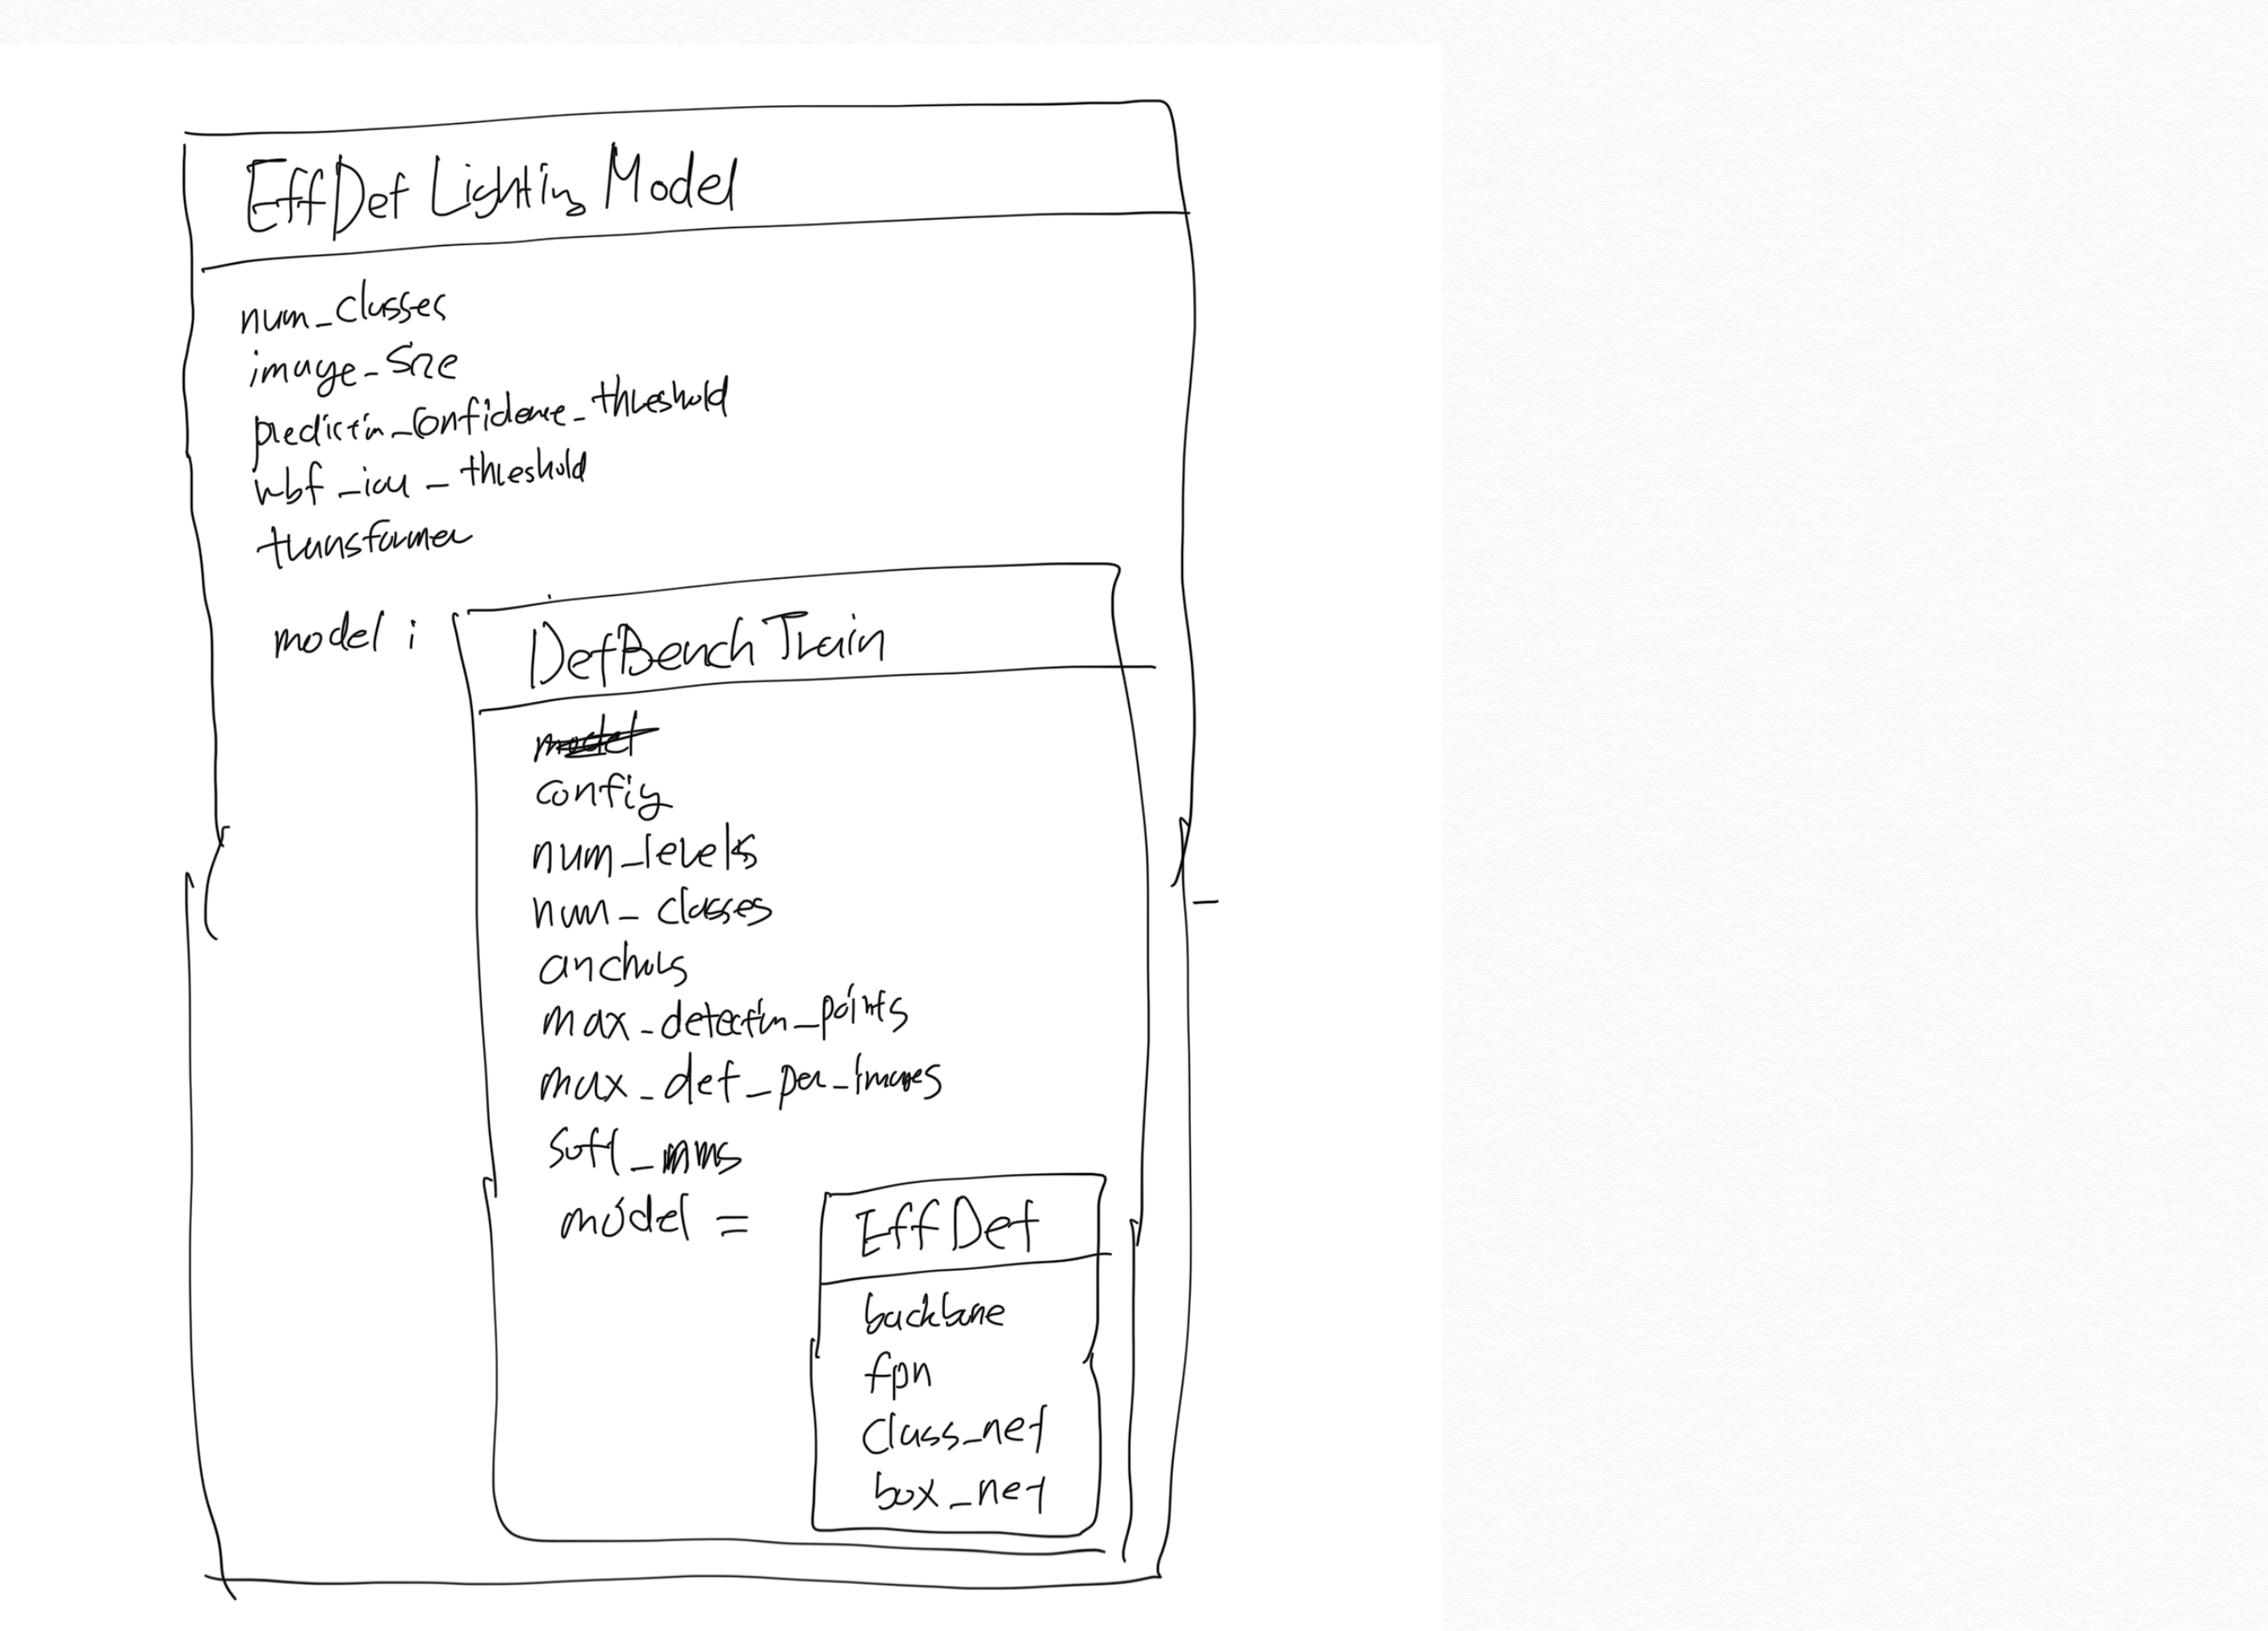 EffDet Lighting Model
num_classes
image_size
prediction_confidence_threshold
wbf_iou_threshold
transformer
model :
DetBench Train
model
config
num_levels
num_classes
anchors
max_detection_points
max_det_per_images
soft_nms
model =
EffDet
backbone
fpn
class_net
box_net